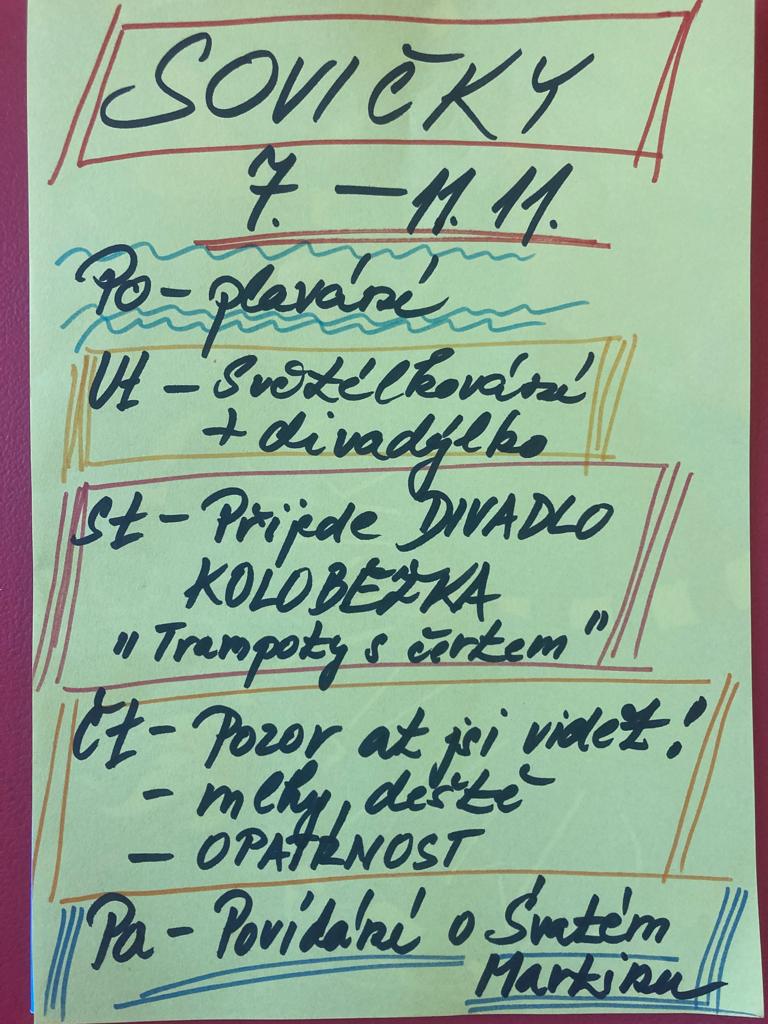 SOVIČKY
7. – 11. 11.
Po – plavání
Út – Světélkování
+ divadýlko
St – Přijde DIVADLO
KOLOBĚŽKA
"Trampoty s čertem"
Čt – Pozor ať jsi vidět!
– mlhy, deště
– OPATRNOST
Pa – Povídání o Svatém
Martinu